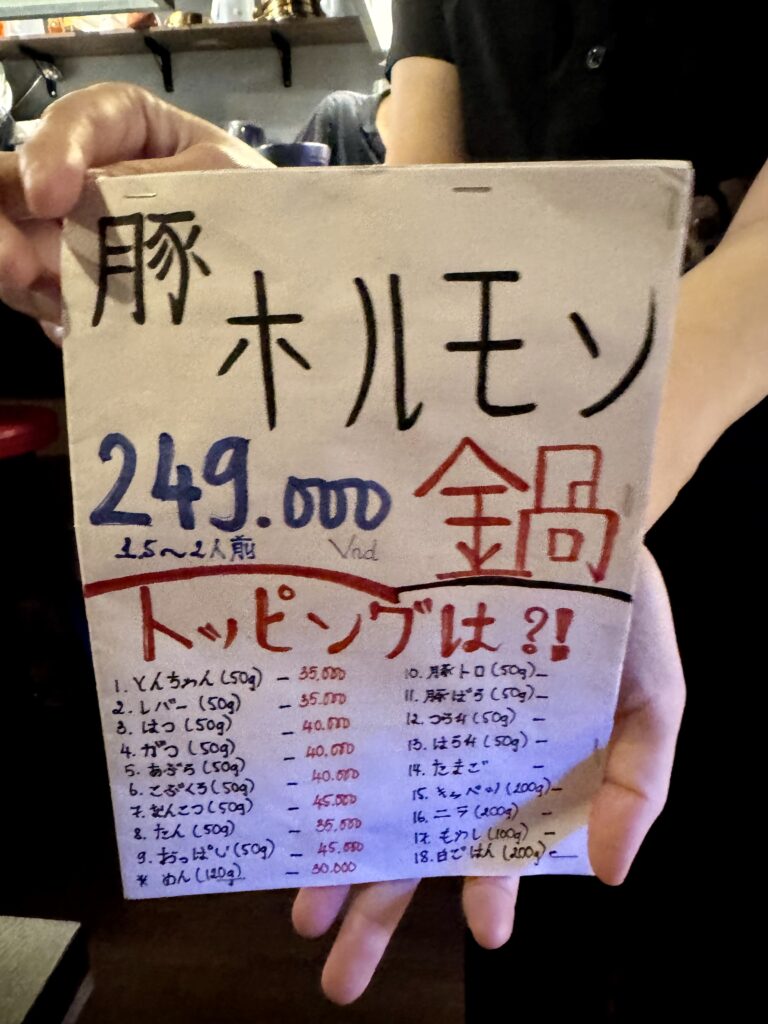 豚
ホルモン
249.000 鍋
1.5〜2人前 Vnd
トッピングは?!
1. とんちゃん (50g) – 35.000
2. レバー (50g) – 35.000
3. はつ (50g) – 40.000
4. がつ (50g) – 40.000
5. あぶら (50g)
6. こぶくろ (50g) – 40.000
7. なんこつ (50g) – 45.000
8. たん (50g) – 35.000
9. おっぱい (50g) – 45.000
* めん (120g) – 30.000
10. 豚トロ (50g) –
11. 豚ばら (50g) –
12. つらみ (50g) –
13. はらみ (50g) –
14. たまご –
15. キャベツ (200g) –
16. ニラ (200g) –
17. もやし (100g) –
18. 白ごはん (200g)